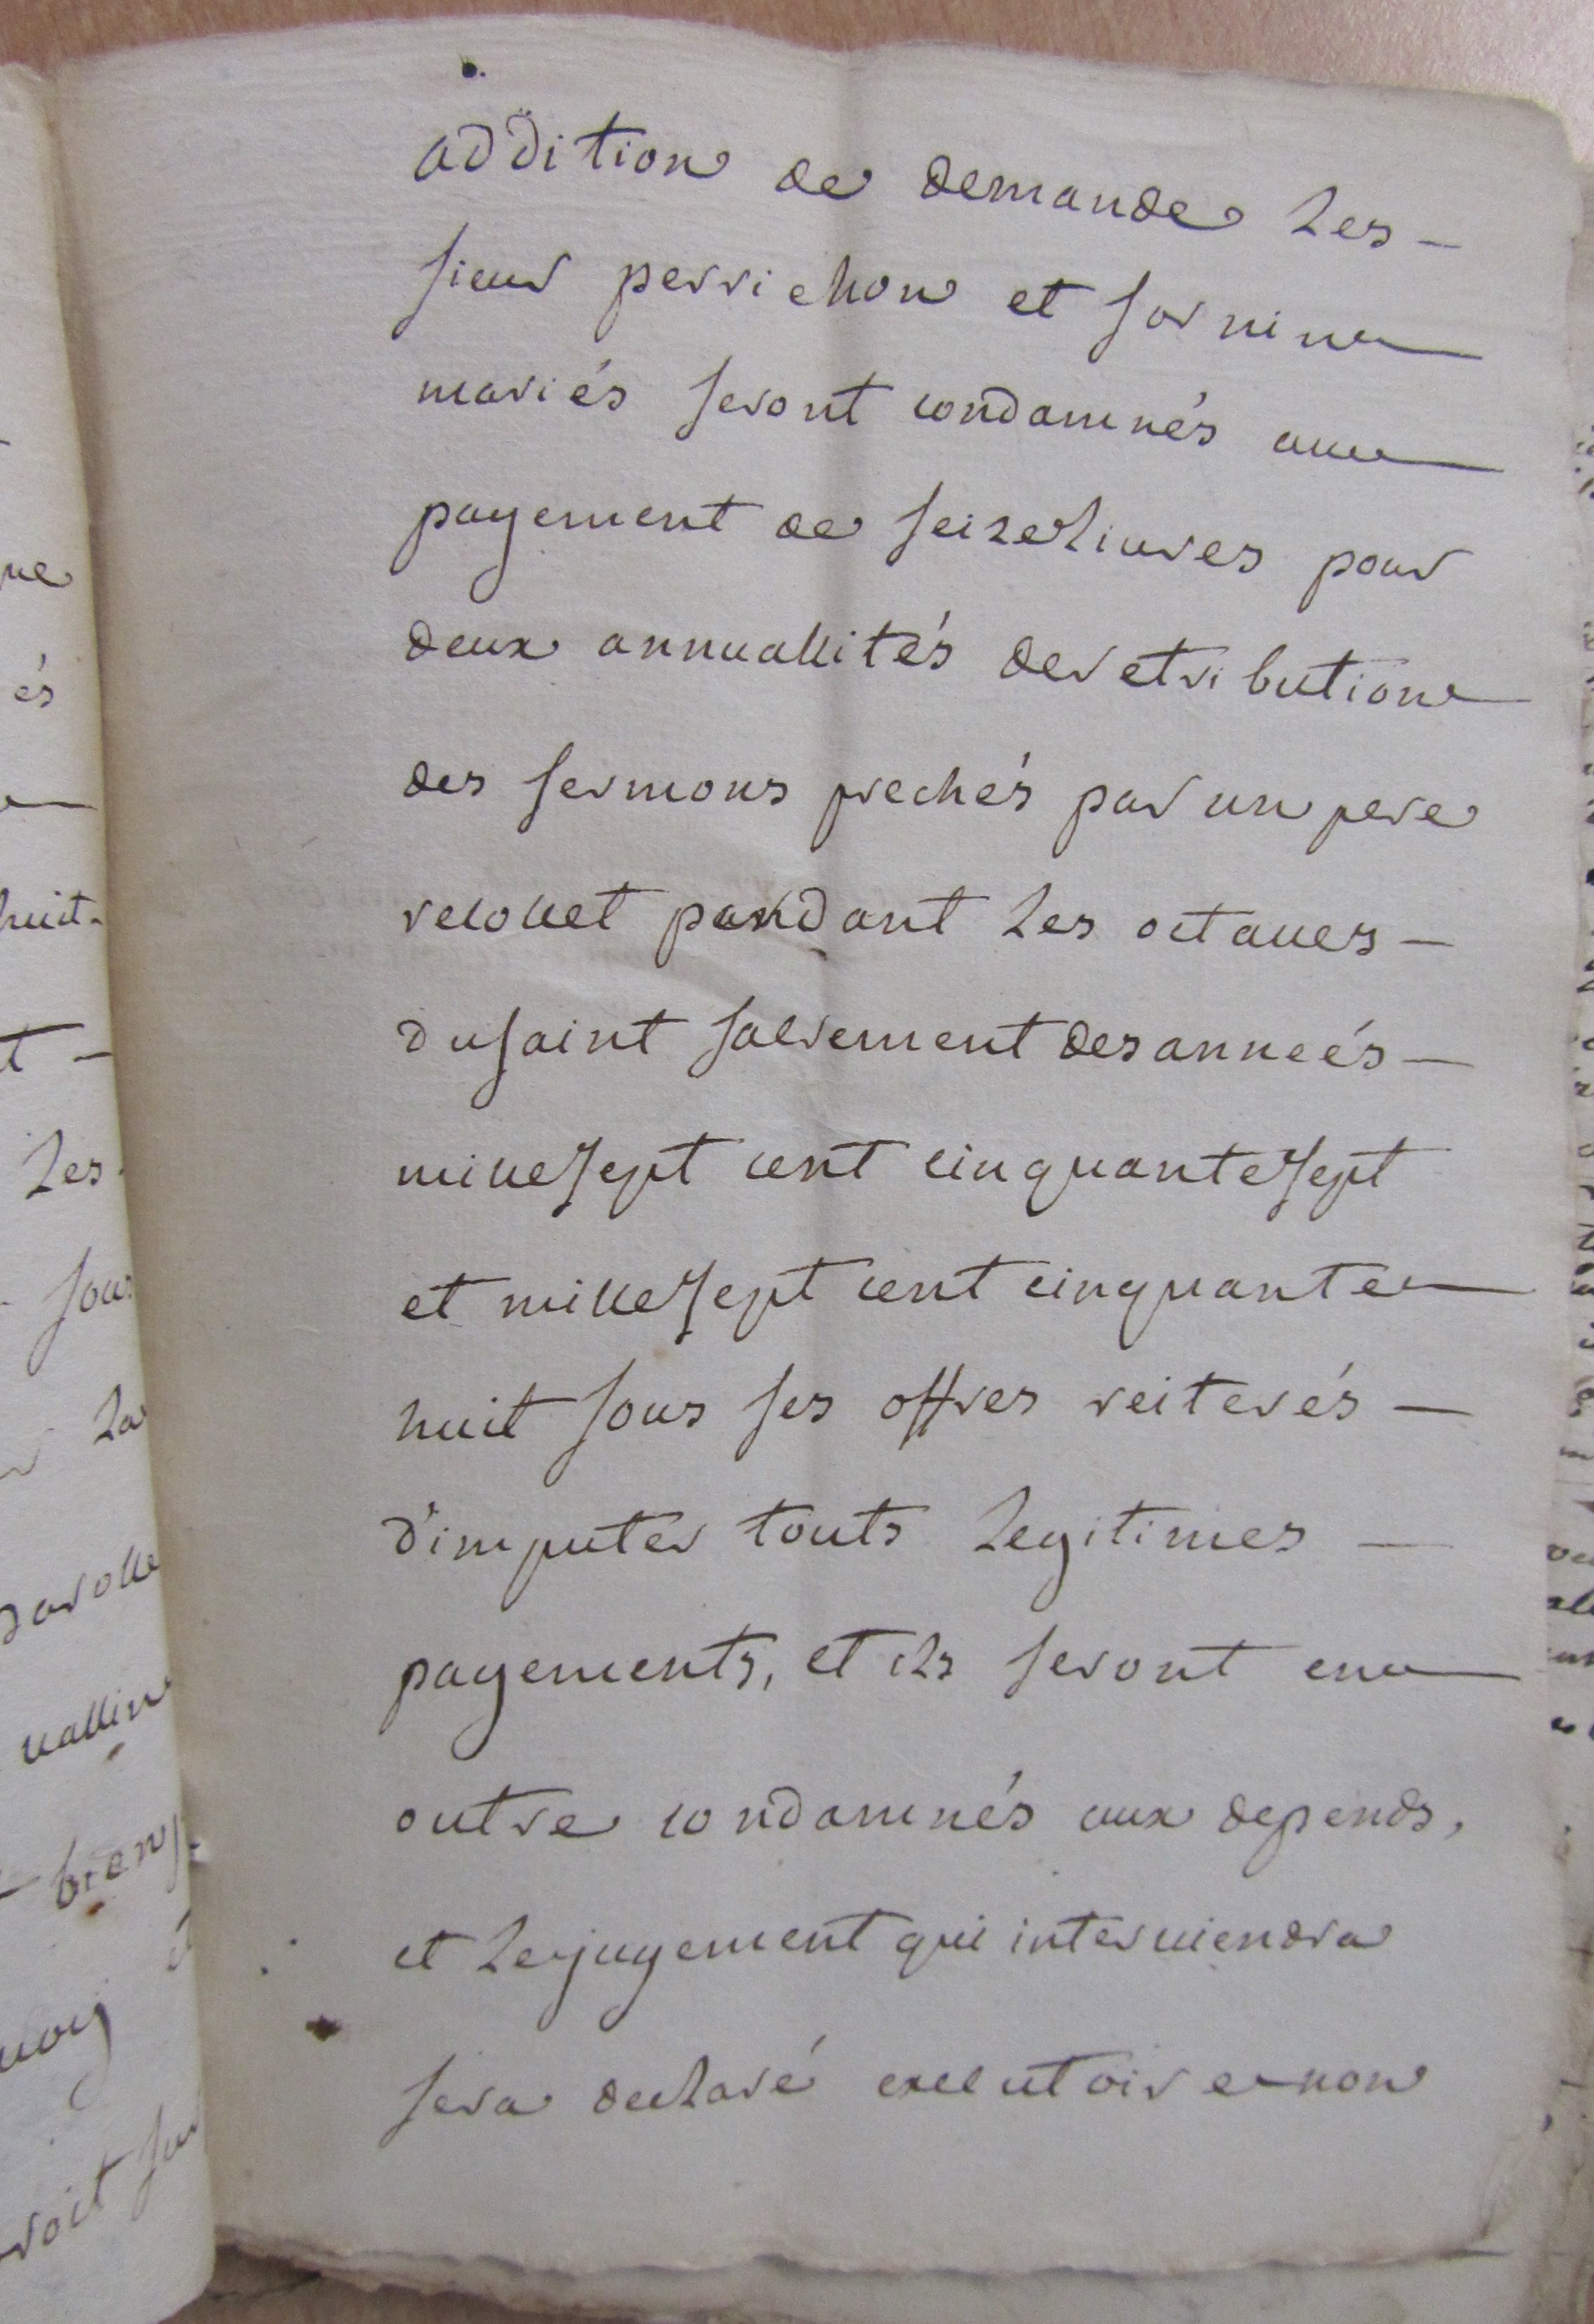 addition de demande les -
sieur perrichon et sornin
mariés seront condamnés au
payement de seize livres pour
deux annuallités de retribution
des sermons prechés par un pere
recollet pendant les octaves -
du saint sacrement des anneés -
mille sept cent cinquante sept
et mille sept cent cinquante
huit sous ses offres reiterés -
d'imputer touts legitimes -
payements, et ils seront en
outre condamnés aux depends,
et le jugement qui interviendra
sera declaré executoire non
ue
és
huit.
t -
les
sous
la
parolle
vallin
voit sur